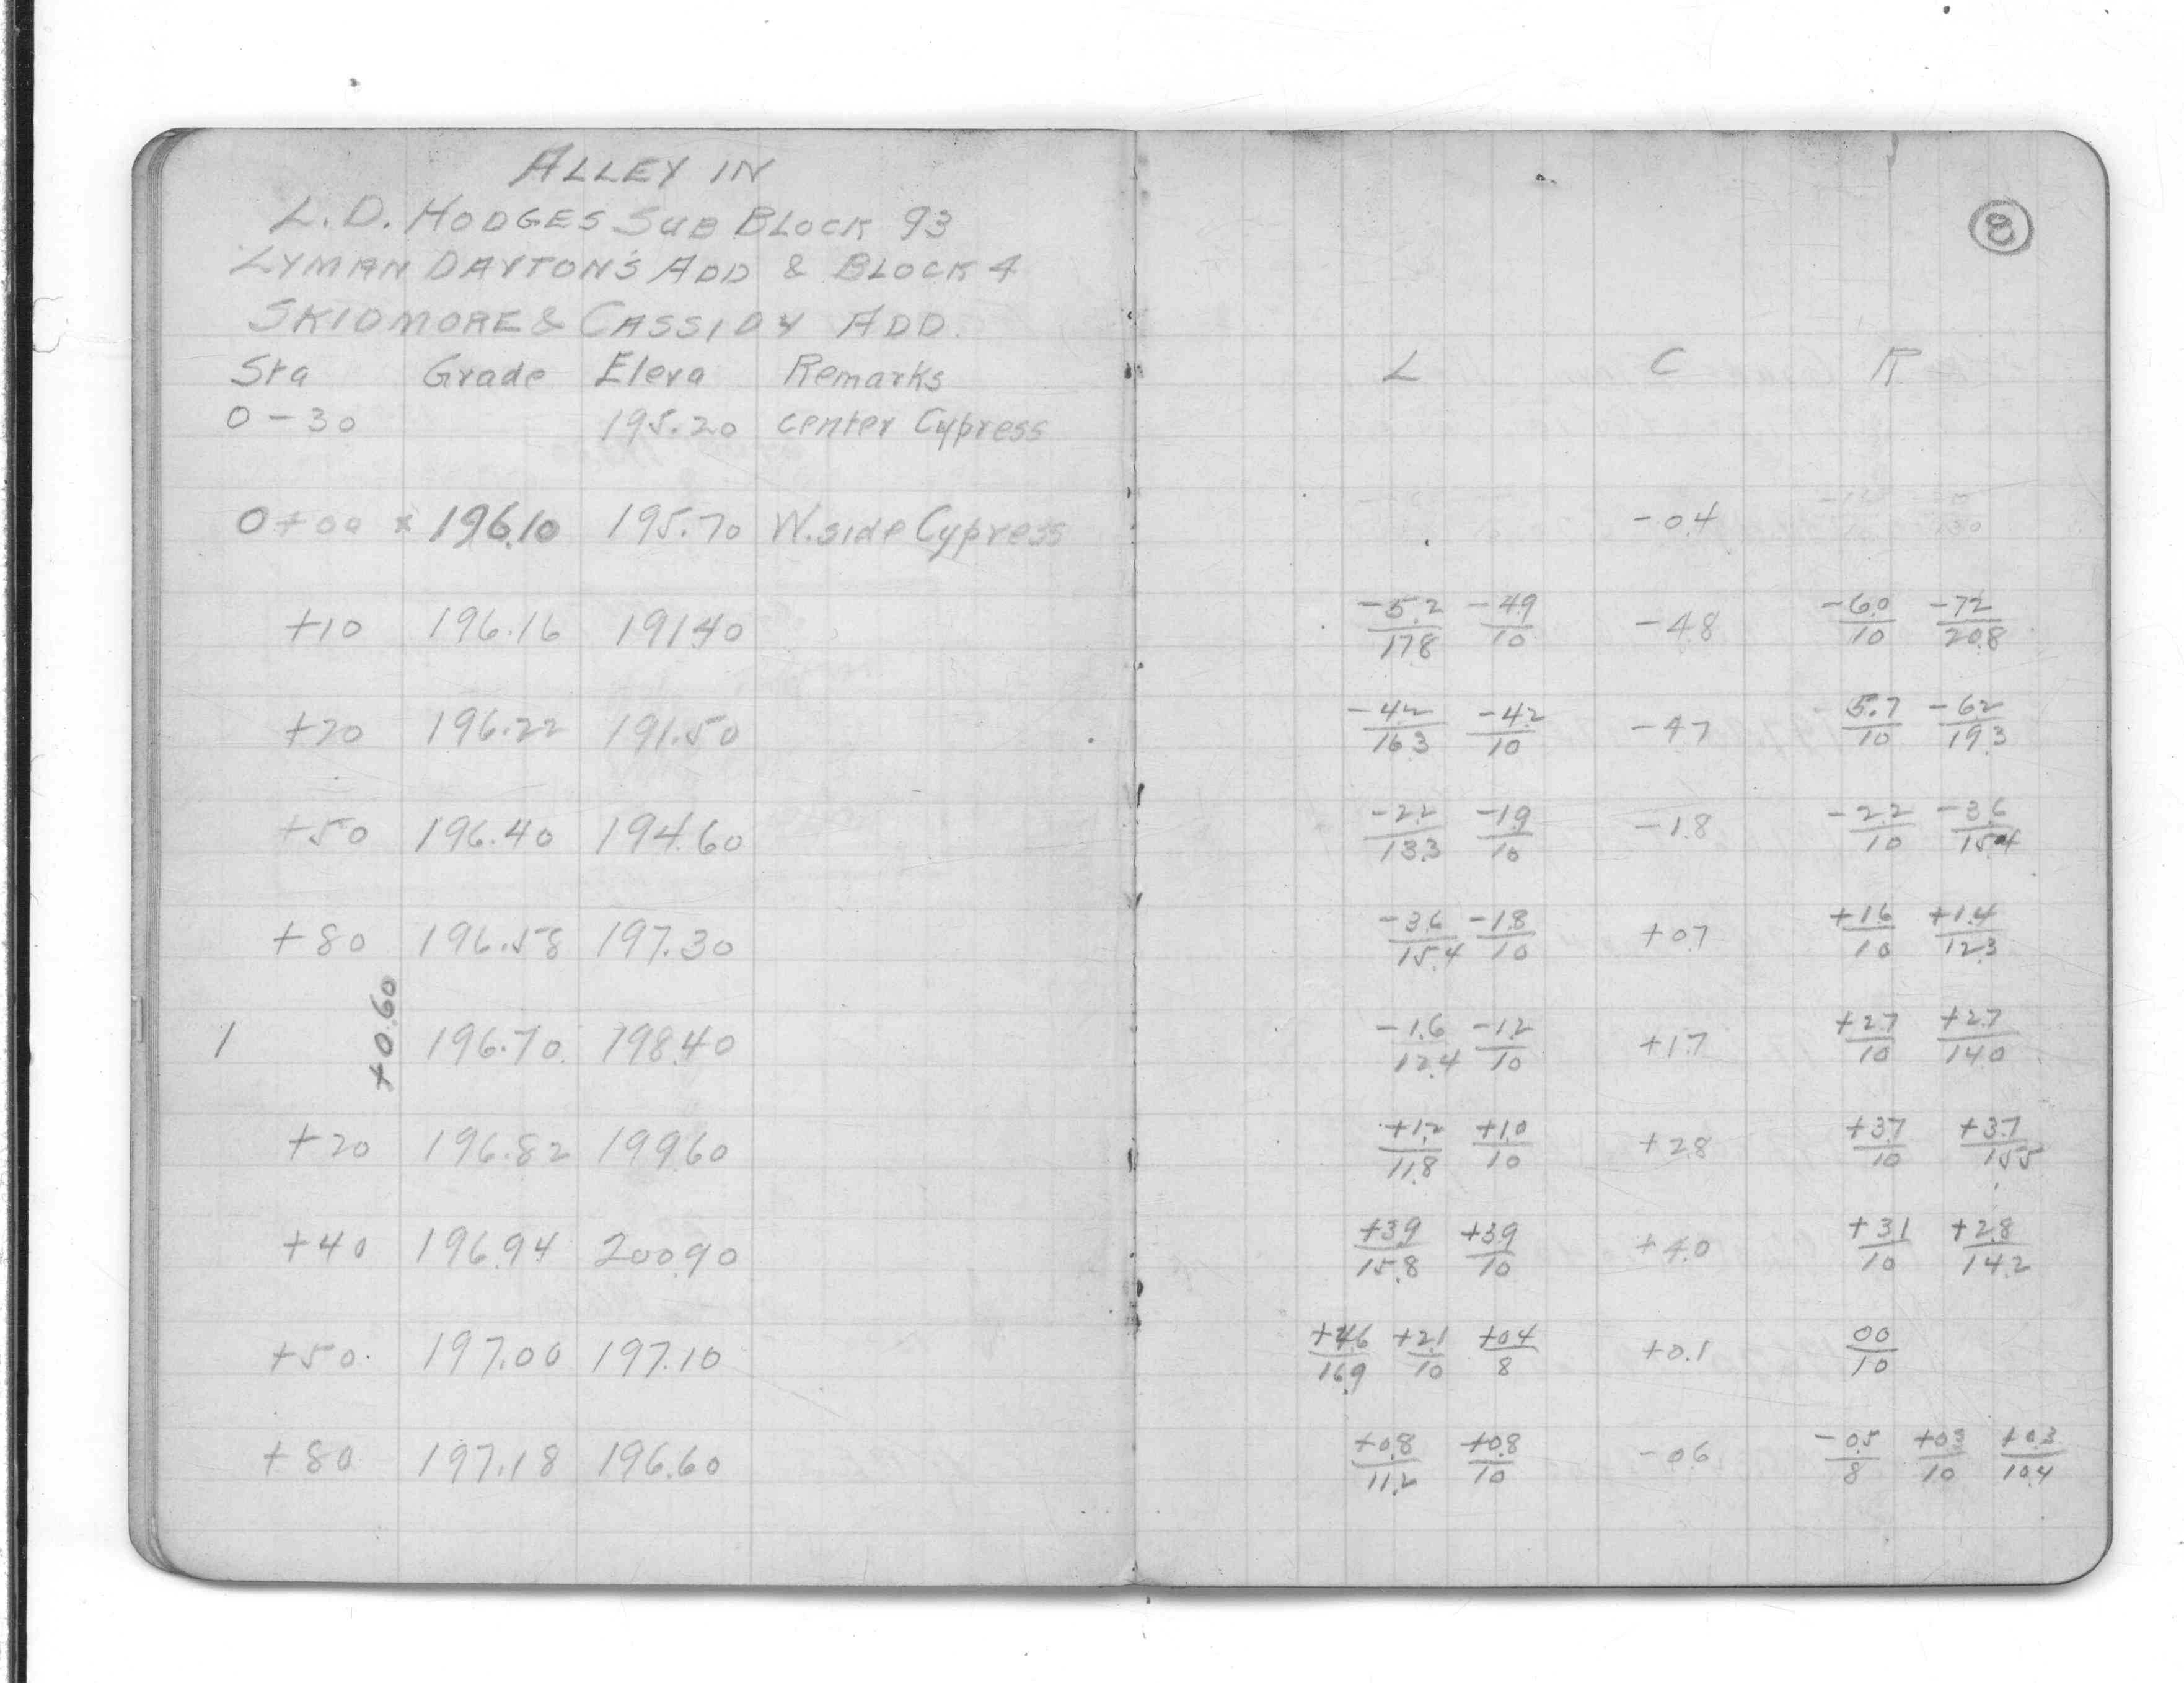 ALLEY IN
L.D. HODGES SUB BLOCK 93
LYMAN DAYTON'S ADD & BLOCK 4
SKIDMORE & CASSIDY ADD.
Sta Grade Eleva Remarks
0-30 195.20 center Cypress
0+00 x 196.10 195.70 W. side Cypress
+10 196.16 191.40
+20 196.22 191.50
+50 196.40 194.60
+80 196.58 197.30
+0.60
1 196.70 198.40
+20 196.82 199.60
+40 196.94 200.90
+50 197.00 197.10
+80 197.18 196.60
8
L C R
-0.4
-5.2/17.8 -4.9/10 -4.8 -6.0/10 -7.2/20.8
-4.2/16.3 -4.2/10 -4.7 -5.7/10 -6.2/19.3
-2.2/13.3 -1.9/10 -1.8 -2.2/10 -3.6/15.4
-3.6/15.4 -1.8/10 +0.7 +1.6/10 +1.4/12.3
-1.6/12.4 -1.2/10 +1.7 +2.7/10 +2.7/14.0
+1.2/11.8 +1.0/10 +2.8 +3.7/10 +3.7/15.5
+3.9/15.8 +3.9/10 +4.0 +3.1/10 +2.8/14.2
+4.6/16.9 +2.1/10 +0.4/8 +0.1 00/10
+0.8/11.2 +0.8/10 -0.6 -0.5/8 +0.3/10 +0.3/10.4